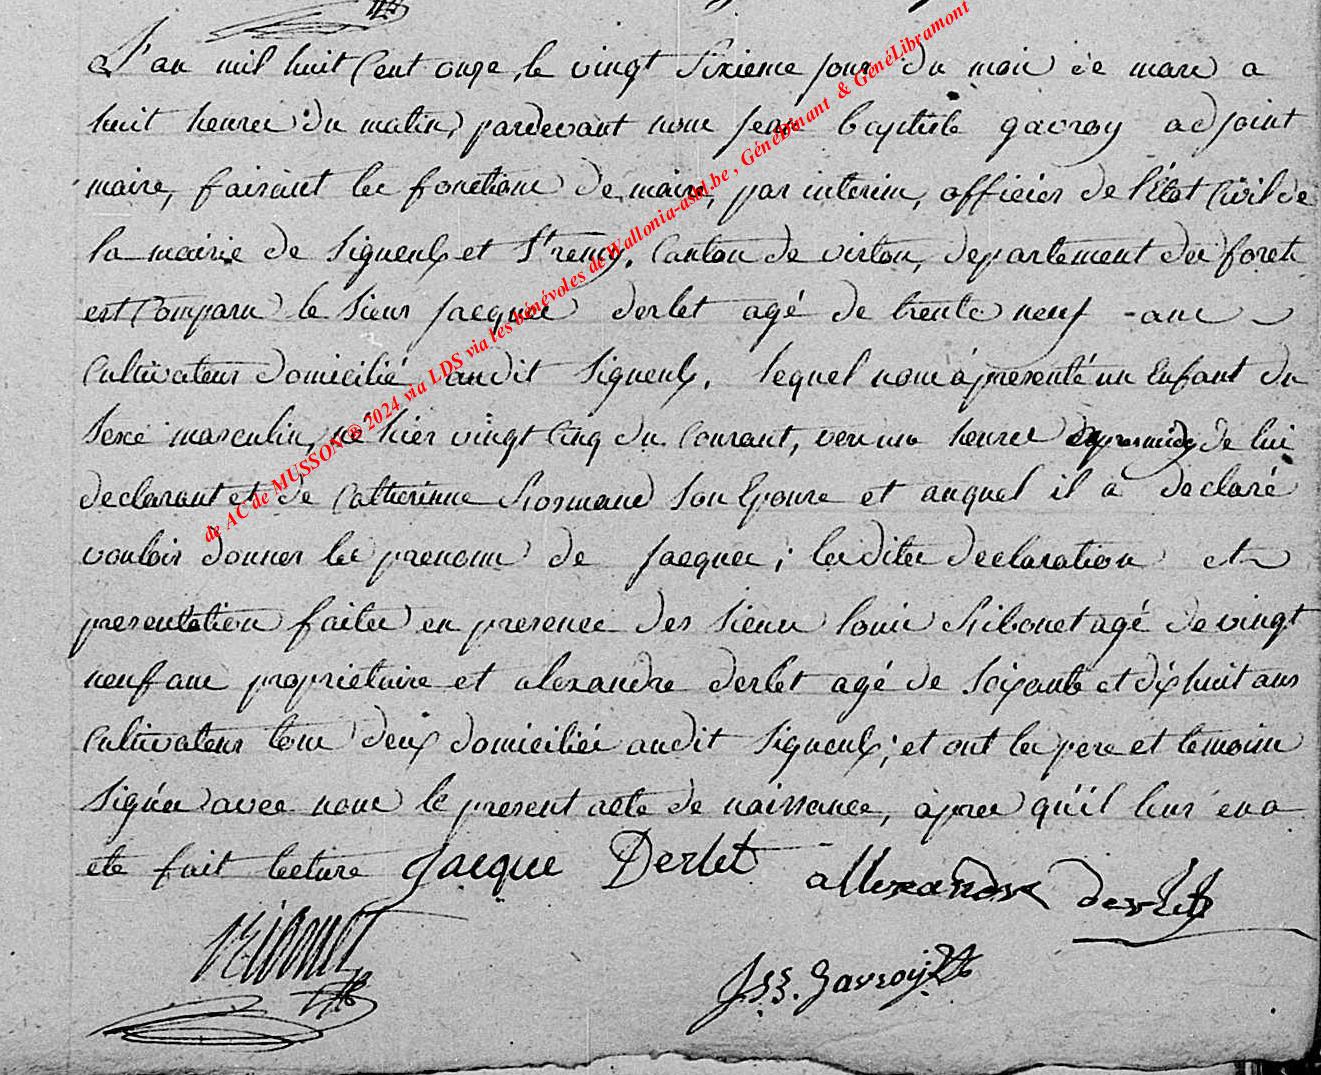 L'an mil huit Cent onze, le vingt Sixieme jour du mois de mars a
huit heures du matin, pardevant nous jean baptiste gavroy adjoint
maire, faisant les fonctions de maire, par interim, officier de l'État Civil de
la mairie de Signeulx et St remy, Canton de virton, departement des forets
est Comparu le Sieur jacques derlet agé de trente neuf ans
Cultivateur domicilié audit Signeulx, lequel nous a presenté un Enfant du
Sexe masculin, né hier vingt Cinq du Courant, vers une heure de lui
declarant et de Catherinne Son Epouse et auquel il a declaré
vouloir donner les prenoms de jacques; lesdites declaration et
presentation faites en presence des Sieurs louis Ribonet agé de vingt
neuf ans proprietaire et alexandre derlet agé de Soixante et dixhuit ans
Cultivateur tous deux domiciliés audit Signeulx; et ont les pere et temoins
Signés avec nous le present acte de naissance, apres qu'il leur en a
ete fait lecture Jacque Derlet allexandre derlet
Ribonet
J.B. Gavroy
de AC de MUSSON ® 2024 via LDS via les bénévoles de Wallonia-asbl.be, GénéDinant & GénéLibramont